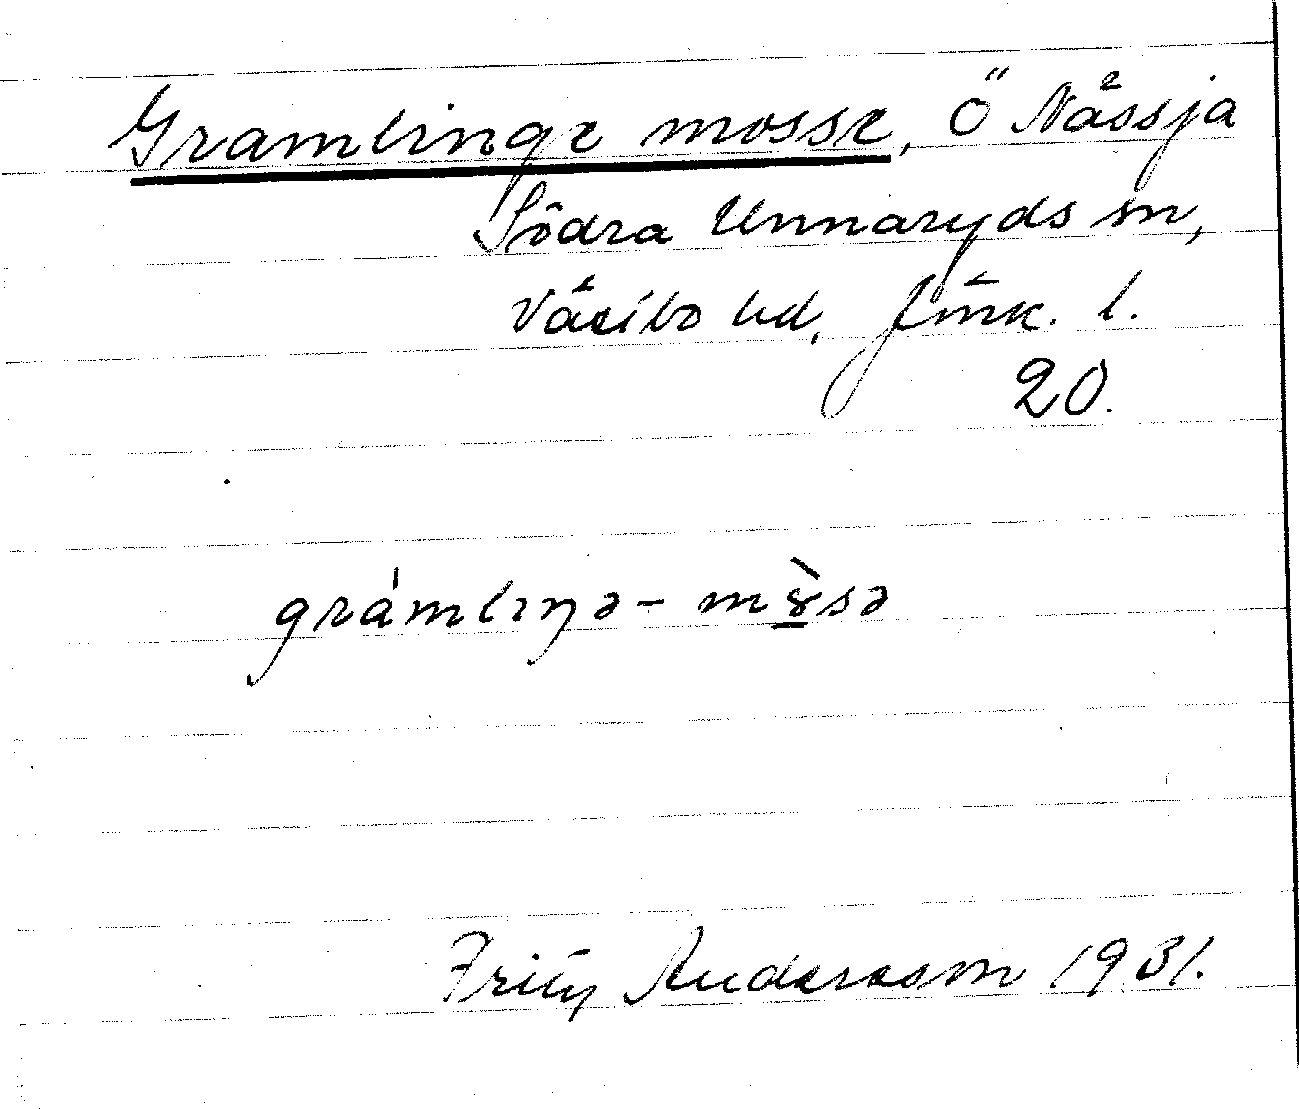 Gramlinge mosse, Ö Nässja
Södra Unnaryds sn,
Västbo hd, Jönk. l.
20.
grámlıŋə - mɤ̱̀sə
Fritz Andersson 1931.